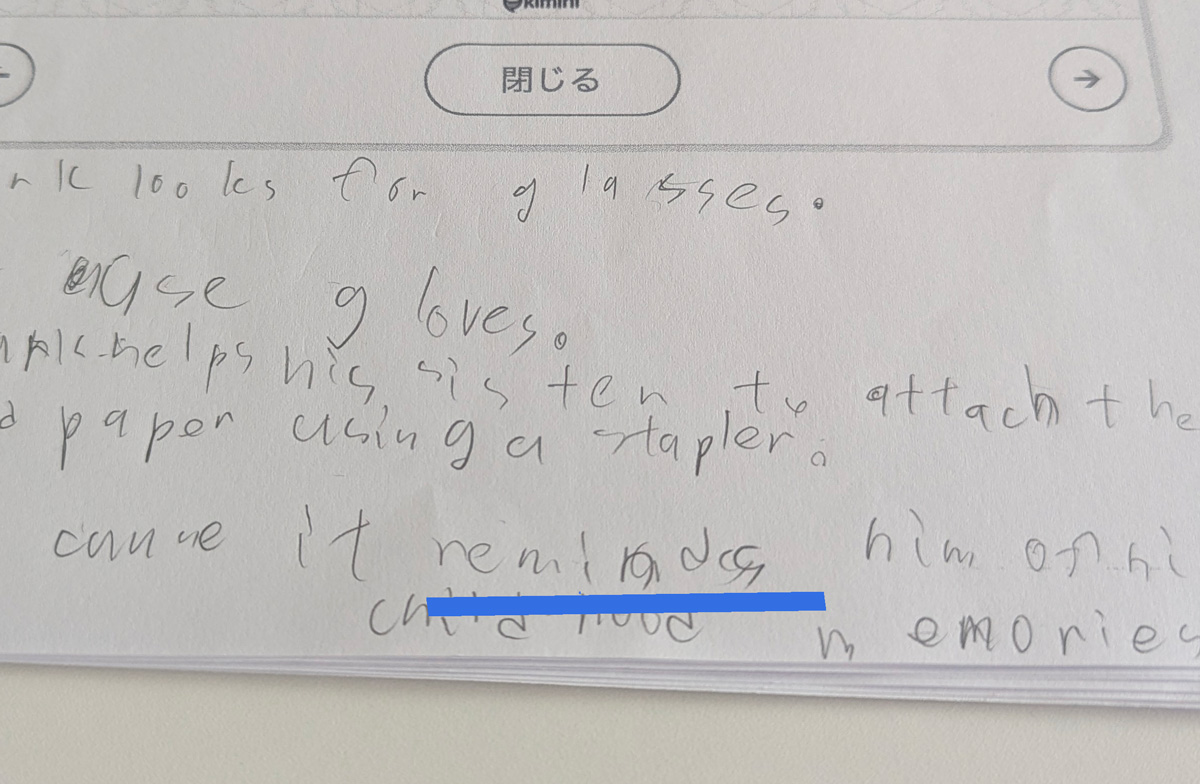 kimini
閉じる
looks for glasses.
gloves.
helps his sister to attach the
paper using a stapler.
it reminds him of hi
memories